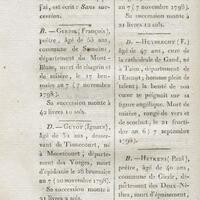 j'ai, est écrit : Sans suc-
cession.
B. — GEREBL (François),
prêtre, âgé de 55 ans,
commune de Semuini
département du Mont-
Blanc, mort de chagrin et
de misère, le 17 bru-
maire an 7 (7 novembre
1798).
Sa succession monte à
42 livres 10 sols.
D. — GUYOT (Ignace),
âgé de 52 ans, demeu-
rant de Tinnecourt, né
à Maconcourt, départe-
ment des Vosges, mort
d'épidémie le 28 brumaire
an 7 (20 novembre 1798).
Sa succession monte à
21 livres 10 sols.
an 7 (7 novembre 1798).
Sa succession monte à
21 livres 12 sols.
D. — HUYBRECHT (F.)
âgé de 47 ans, curé de
la cathédrale de Gand, né
à Taim, département de
l'Escaut; homme plein de
talent; dans sa colère il
ne se peignait que sa
figure angélique. Mort de
misère, rongé de vers,
et le scorbut, le 21 fructi-
dor an 6 (7 septembre
1798).
B. — HEYKENS (Paul),
prêtre, âgé de 40 ans,
commune de Gierle, dé-
partement des Deux-Nè-
thes, mort d'épuisement,